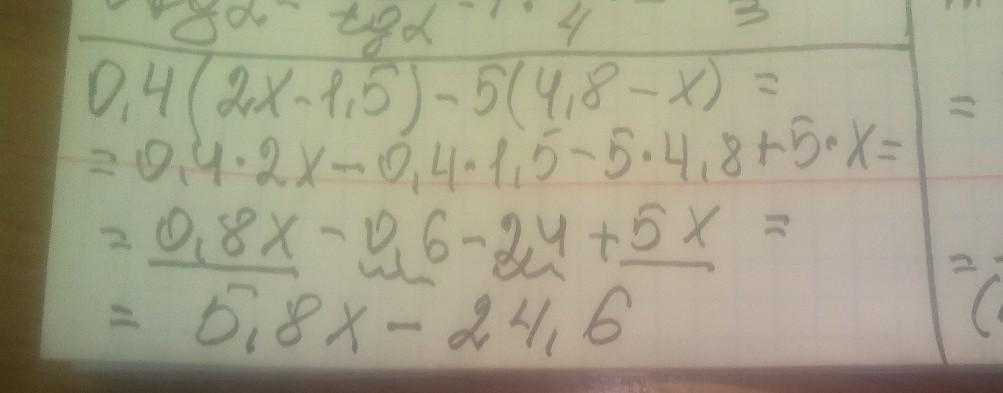 tgα 4 3
0,4(2x-1,5)-5(4,8-x)=
=0,4·2x-0,4·1,5-5·4,8+5·x=
=0,8x-0,6-24+5x=
=5,8x-24,6
=
=
(